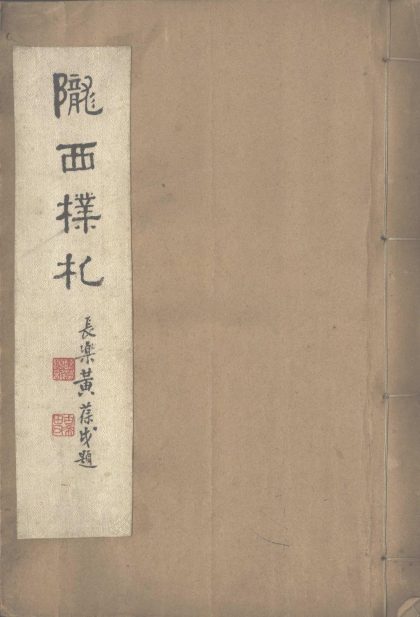 隴西樸札
長樂黃葆戉題